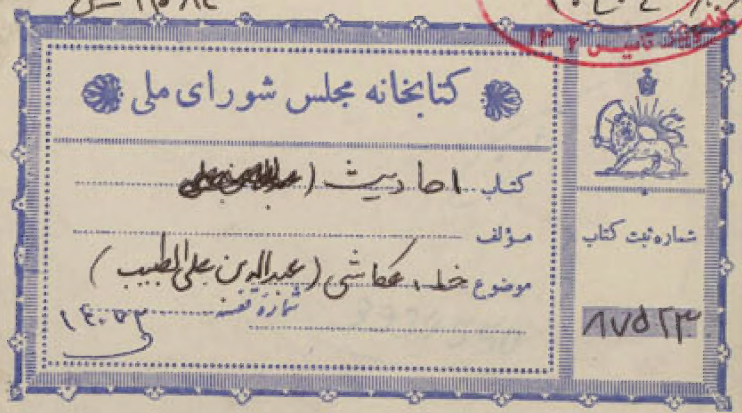 کتابخانه مجلس شورای ملی
کتاب احادیث (
مؤلف
موضوع خط عکاشی (عبدالله بن علی الطبیب)
شماره قفسه
۱۴۰۷۳
شماره ثبت کتاب
۸۷۵۲۳